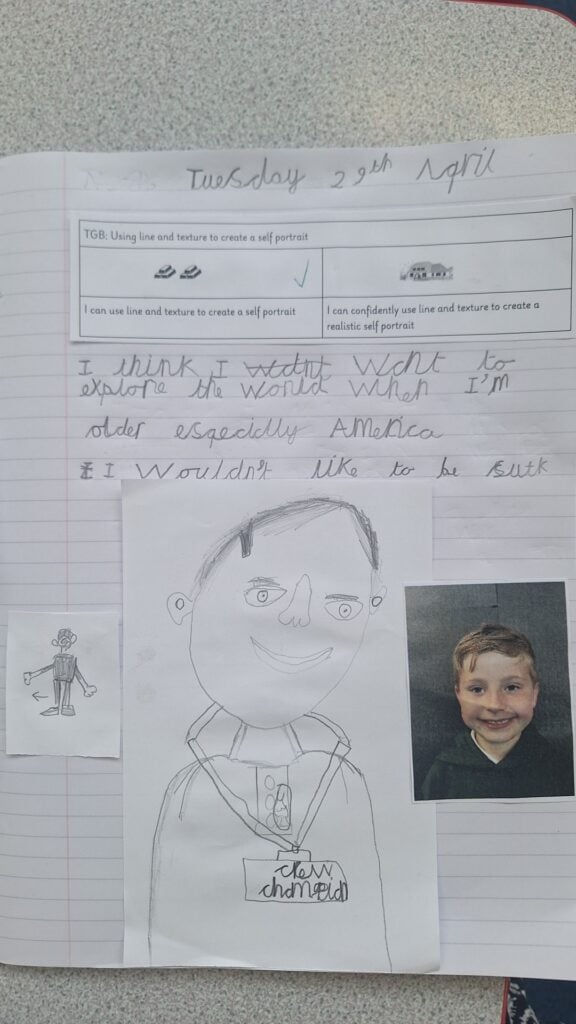 Tuesday 29th April
TGB: Using line and texture to create a self portrait
I can use line and texture to create a self portrait
I can confidently use line and texture to create a
realistic self portrait
I think I want want to
explore the world when I'm
older especially America
I I wouldn't like to be sutk
crew
champion